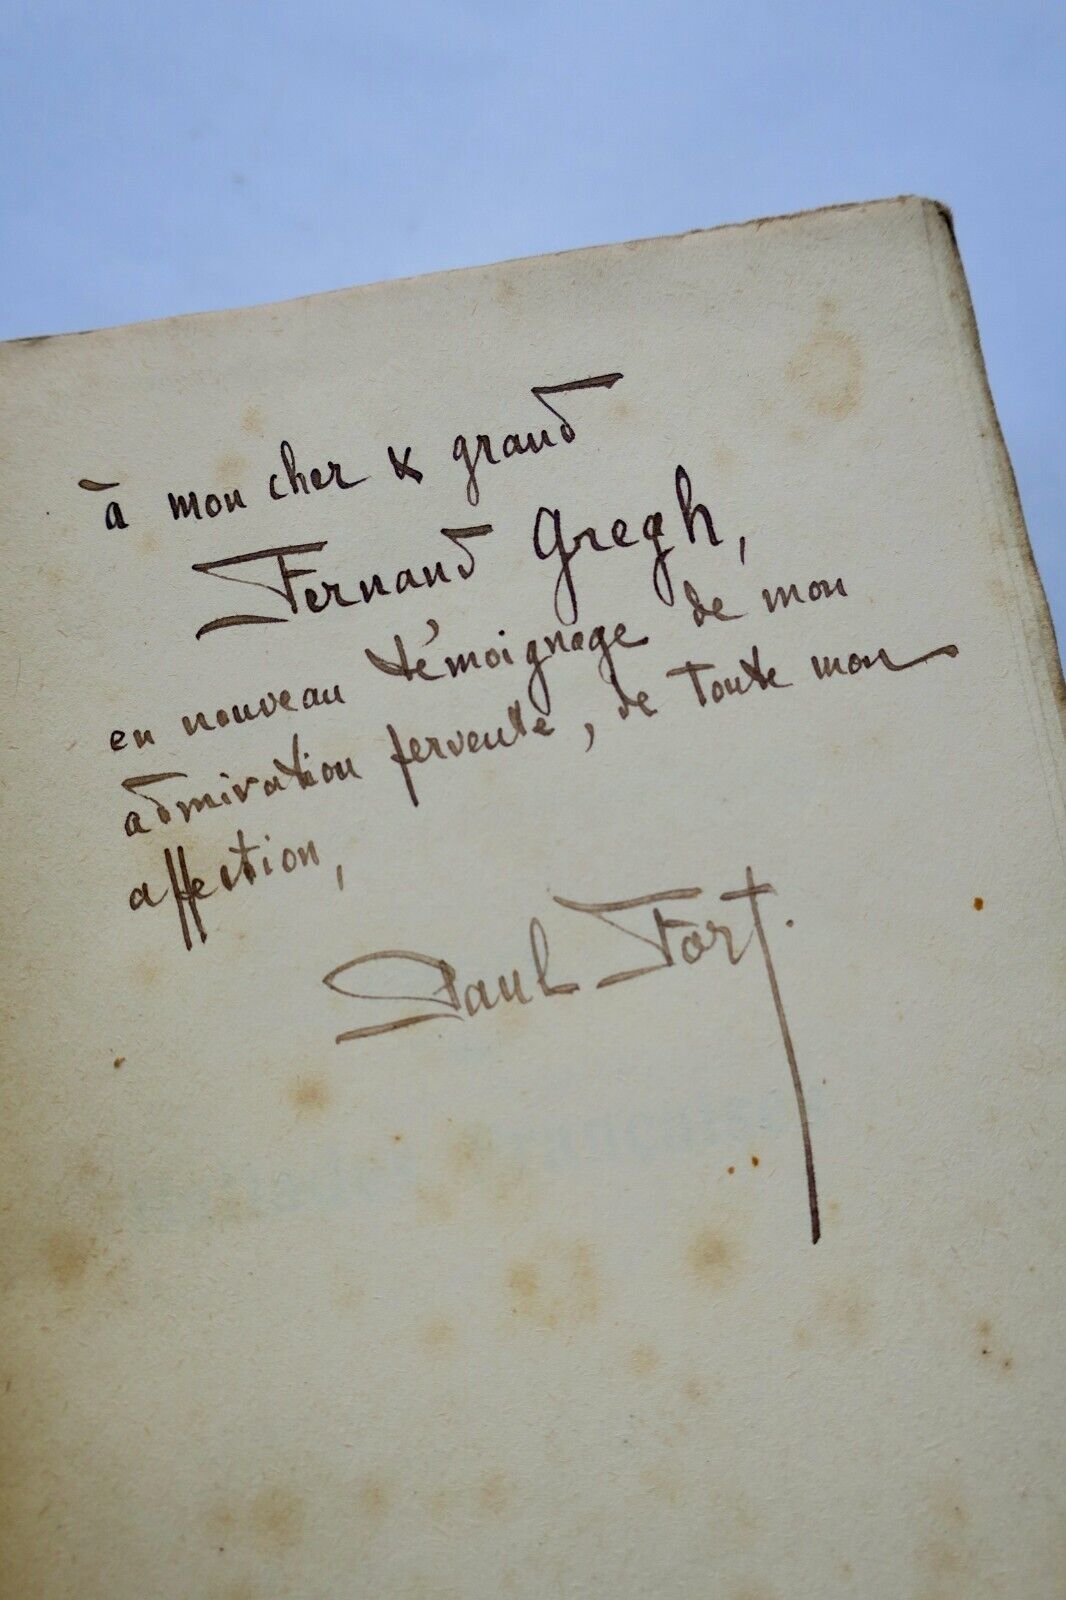 à mon cher & grand
Fernand Gregh,
en nouveau témoignage de mon
admiration fervente, de toute mon
affection,
Paul Fort.